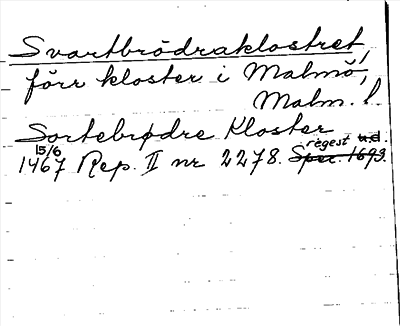 Svartbrödraklostret,
förr kloster i Malmö,
Malm. l
Sortebrødre Kloster
15/6 regest u.d.
1467 Rep. II nr 2278. Sper. 1693.